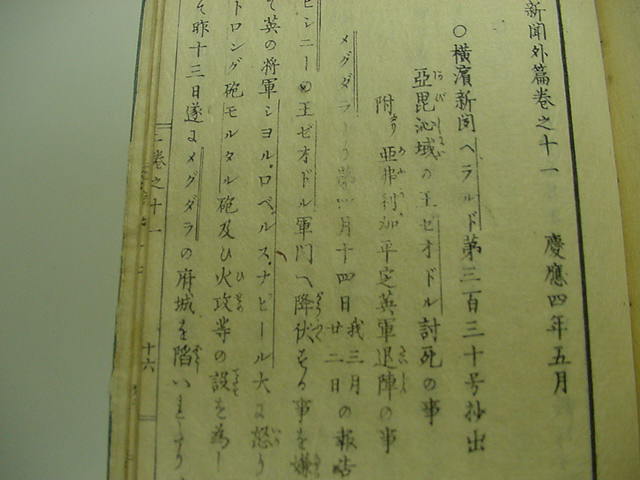 新聞外篇卷之十一　慶應四年五月
○橫濱新聞ヘラルド第三百三十号抄出
亞毘沁域の王ゼオドル討死の事
附り亞弗利加平定英軍退陣の事
メグダラより第四月十四日我三月廿二日の報告
ビシニーの王ゼオドル軍門へ降伏する事を嫌
て英の將軍シヨル.ロベルス.ナピール大に怒り
トロング砲モルタル砲及ひ火攻等の設を為し
て昨十三日遂にメグダラの府城を陷いれたり
卷之十一
十六